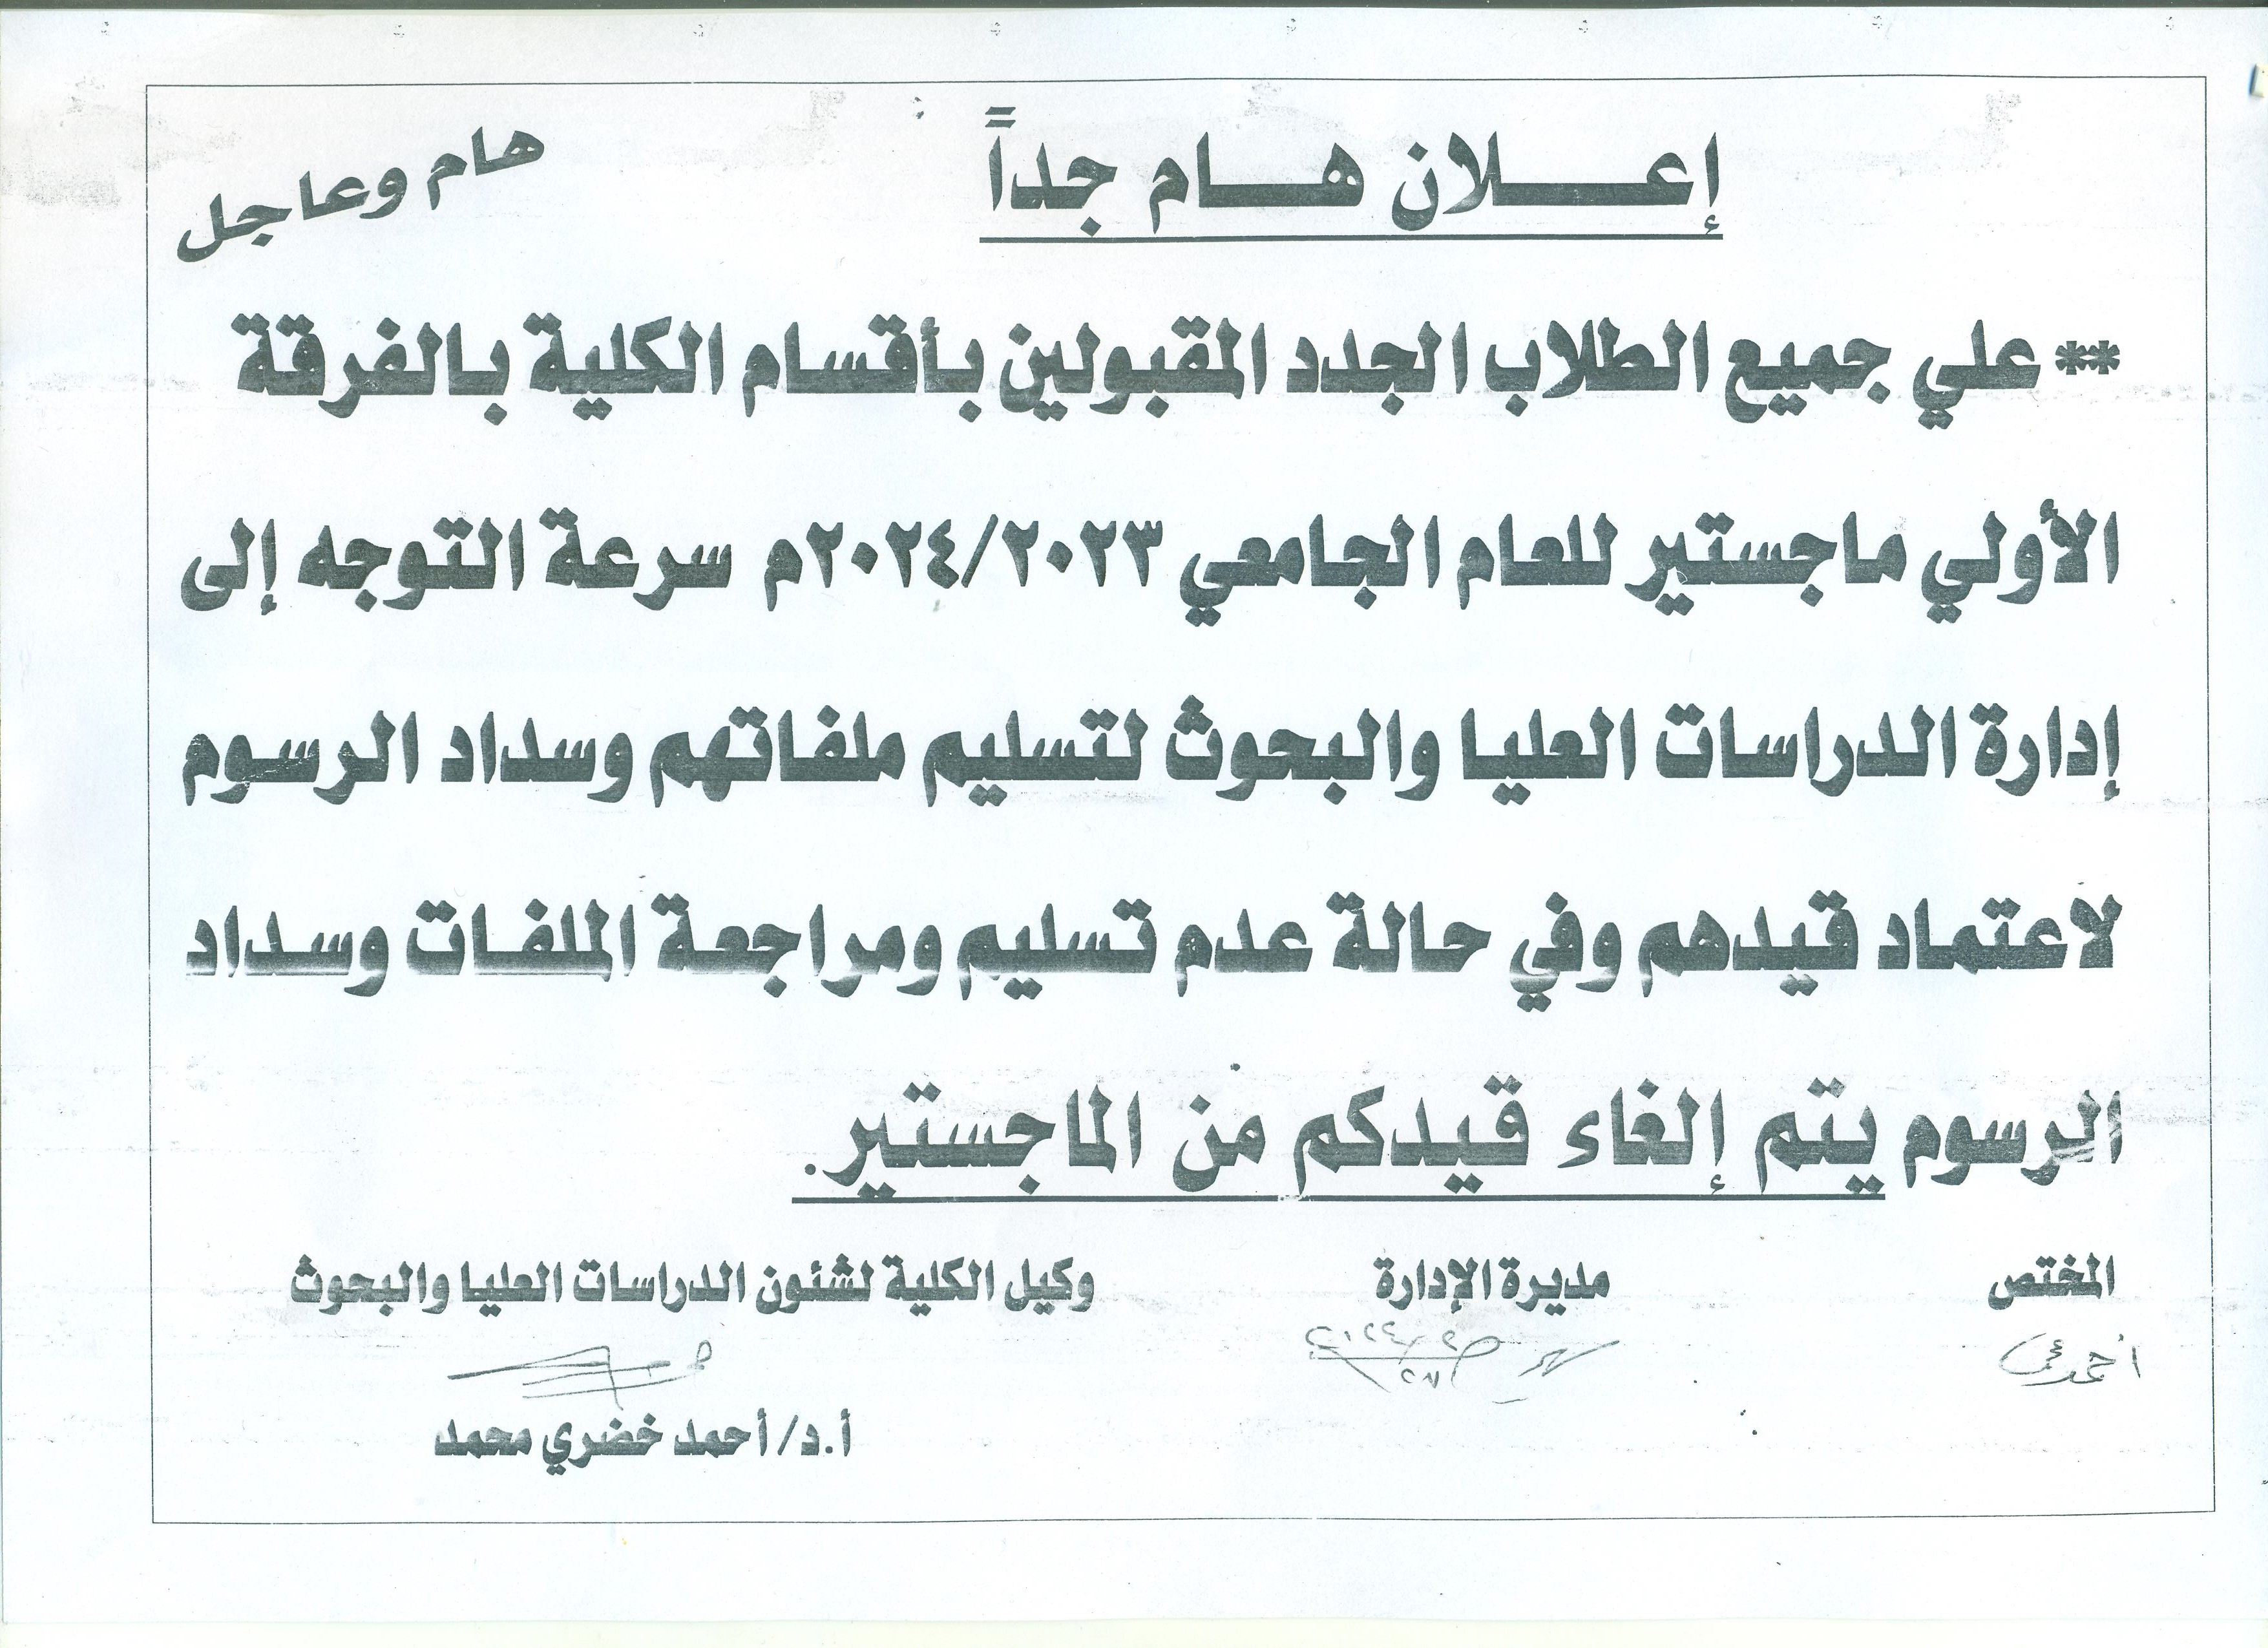 هام وعاجل
إعلان هام جداً
** علي جميع الطلاب الجدد المقبولين بأقسام الكلية بالفرقة
الأولي ماجستير للعام الجامعي ٢٠٢٤/٢٠٢٣م سرعة التوجه إلى
إدارة الدراسات العليا والبحوث لتسليم ملفاتهم وسداد الرسوم
لاعتماد قيدهم وفي حالة عدم تسليم ومراجعة الملفات وسداد
الرسوم يتم إلغاء قيدكم من الماجستير.
المختص مديرة الإدارة وكيل الكلية لشئون الدراسات العليا والبحوث
أ.د/ أحمد خضري محمد